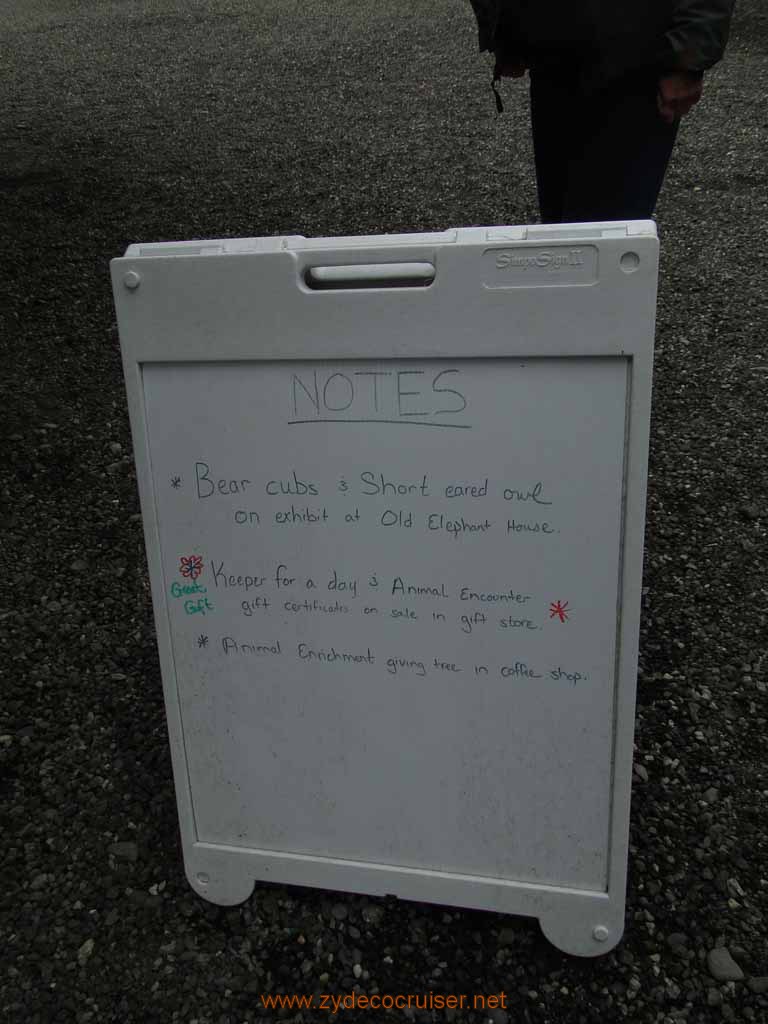 SimpoSign II
NOTES
* Bear cubs & Short eared owl
on exhibit at Old Elephant House.
* Keeper for a day & Animal Encounter
Great Gift
gift certificates on sale in gift store. *
* Animal Enrichment giving tree in coffee shop.
www.zydecocruiser.net